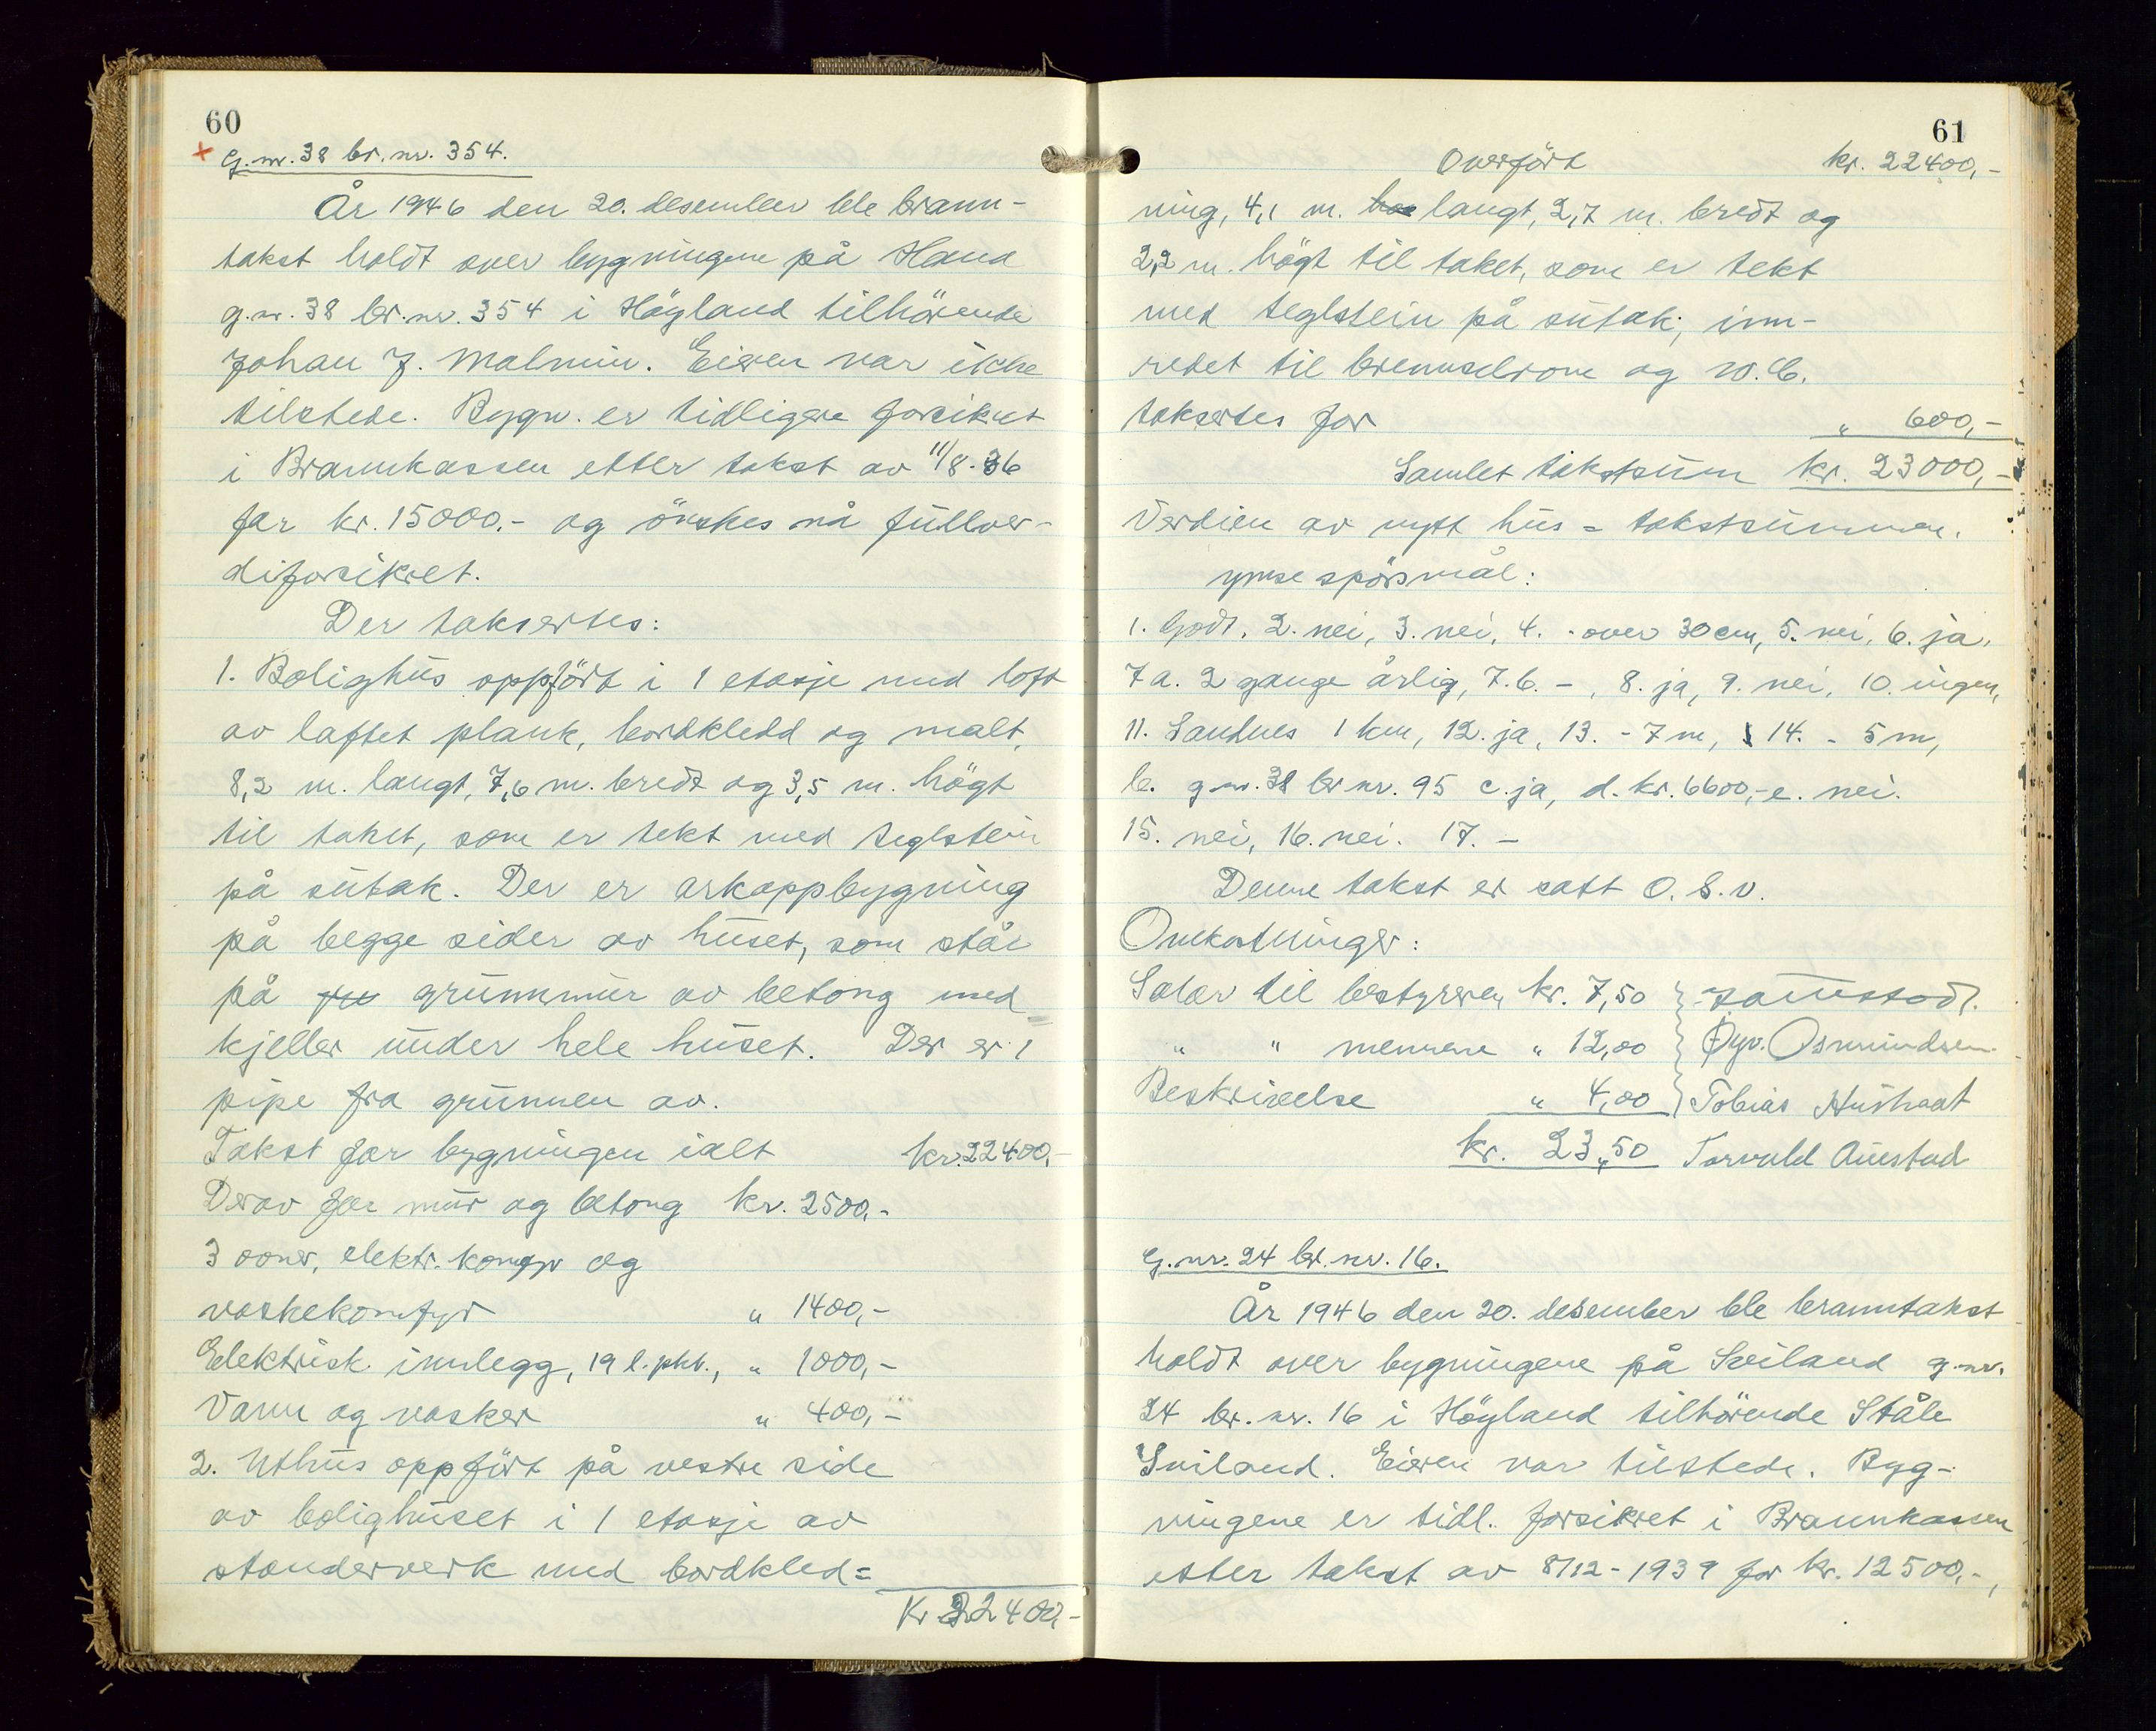 60
G.nr. 38 br.nr. 354.
År 1946 den 20. desember ble brann-
takst holdt over bygningene på Hana
g.nr. 38 br.nr. 354 i Höyland tilhörende
Johan J. Malmin. Eieren var ikke
tilstede. Bygn. er tidligere forsikret
i Brannkassen etter takst av 11/8-36
for kr. 15000.- og önskes nå fullver-
diforsikret.
Der taksertes:
1. Bolighus oppfört i 1 etasje med loft
av laftet plank, bordkledd og malt,
8,2 m. langt, 7,6 m. bredt og 3,5 m. högt
til taket, som er tekt med teglstein
på sutak. Der er arkoppbygning
på begge sider av huset, som står
på grunnmur av betong med
kjeller under hele huset. Der er 1
pipe fra grunnen av.
Takst for bygningen ialt kr. 22400,-
Derav for mur og betong kr. 2500,-
3 ovner, elektr. komfyr og
vaskekomfyr " 1400,-
Elektrisk innlegg, 19 l.pkt., " 1000,-
Vann og vasker " 400,-
2. Uthus oppfört på vestre side
av bolighuset i 1 etasje av
standerverk med bordkled=
Kr 22400,-
61
Overfört kr. 22400,-
ning, 4,1 m. langt, 2,7 m. bredt og
2,2 m. högt til taket, som er tekt
med teglstein på sutak, inn-
redet til brenselrom og W.C.
taksertes for " 600,-
Samlet takstsum kr. 23000,-
Verdien av nytt hus = takstsummen.
Ymse spörsmål:
1. Godt, 2. nei, 3. nei, 4. - over 30 cm, 5. nei, 6. ja,
7a. 2 gange årlig, 7.b. - , 8. ja, 9. nei, 10. ingen,
11. Sandnes 1 km, 12. ja, 13. - 7 m, 14. - 5 m,
b. g.nr. 38 br.nr. 95 c. ja, d. kr. 6600,- e. nei.
15. nei, 16. nei. 17. -
Denne takst er satt O.S.V.
Omkostninger:
Salær til bestyreren kr. 7,50
" " mennene " 12,00 Øyv. Osmundsen
Beskrivelse " 4,00 Tobias Hustvedt
kr. 23,50 Torvald Austad
G.nr. 24 br.nr. 16.
År 1946 den 20. desember ble branntakst
holdt over bygningene på Sviland g.nr.
24 br.nr. 16 i Höyland tilhörende Ståle
Sviland. Eieren var tilstede. Byg-
ningene er tidl. forsikret i Brannkassen
etter takst av 8/12-1939 for kr. 12500,-,